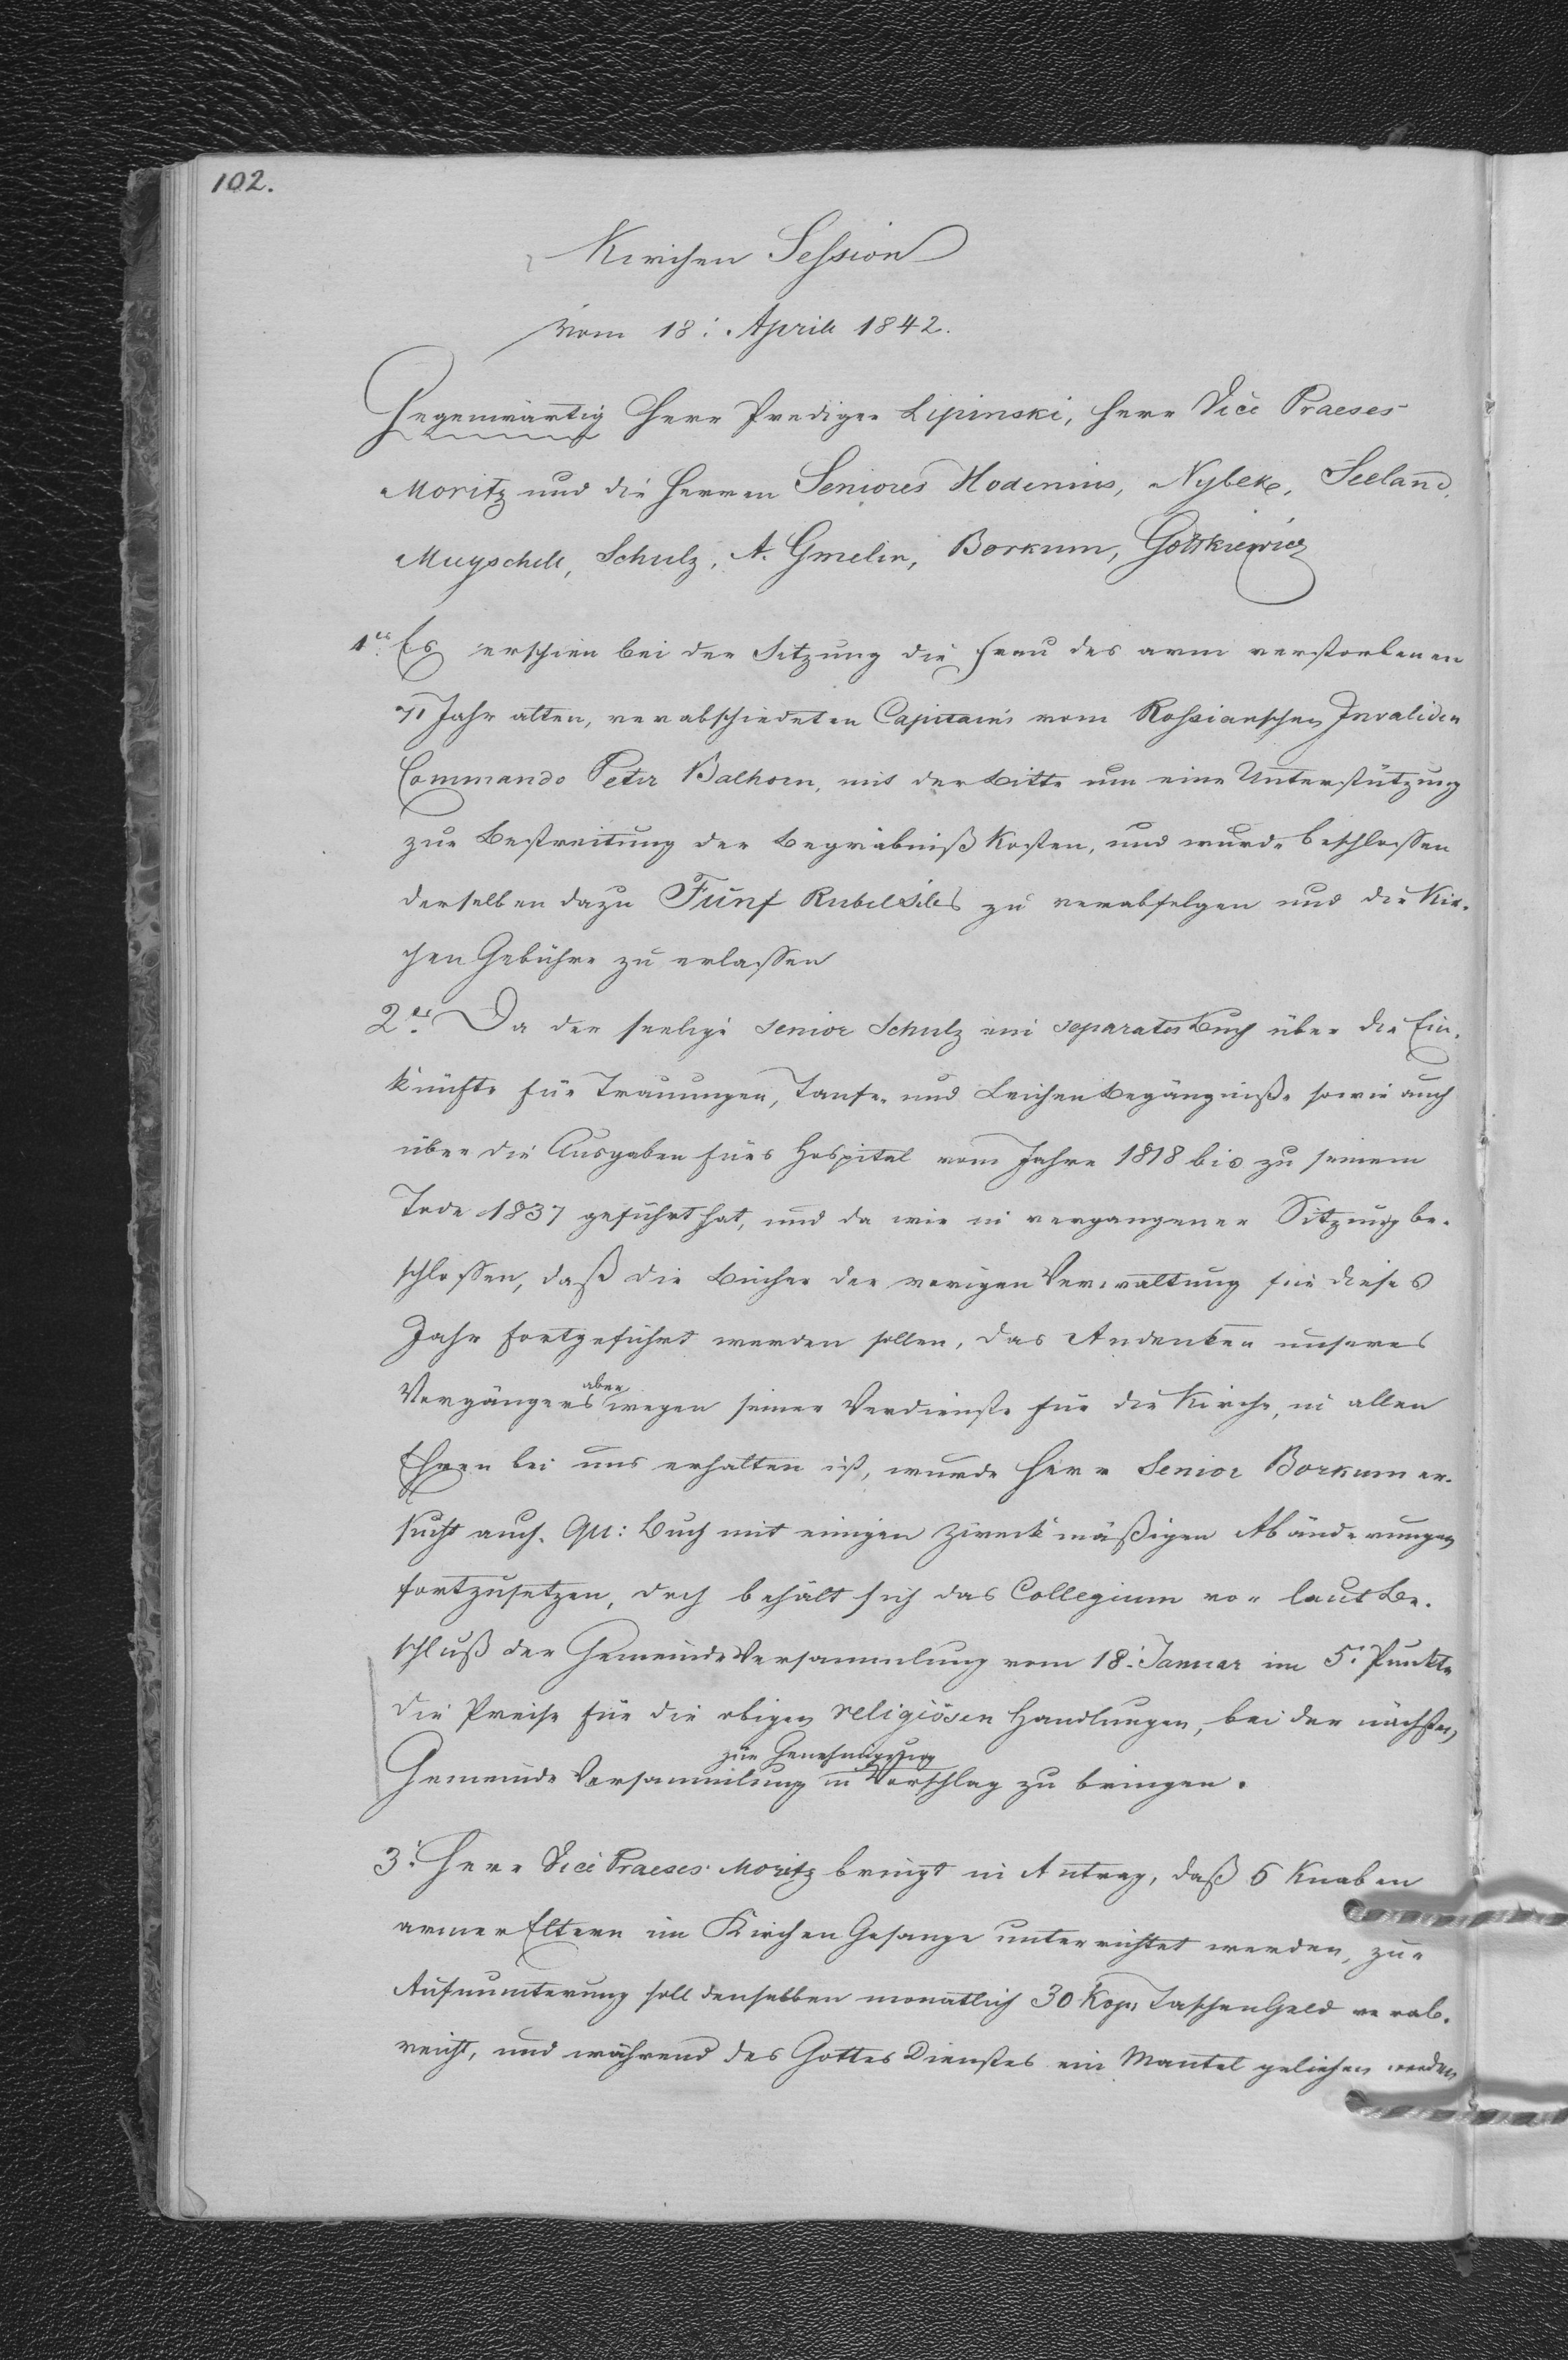 102.
Kirchen Session
vom 18: April 1842.
Gegenwärtig Herr Prediger Lipinski, Herr Vice Praeses
Moritz und die Herren Seniores Hodenius, Nybeke, Seeland,
Mugschell, Schulz, A. Gmelin, Borkum, Gottkiewicz
1es Es erschien bei der Sitzung die Frau des arm verstorbenen
71 Jahr alten, verabschiedeten Capitains vom Rossianschen Invaliden
Commando Peter Balhorn, mit der Bitte um eine Unterstützung
zur Bestreitung der Begräbniß Kosten, und wurde beschlossen
derselben dazu Fünf Rubel Silb zu verabfolgen und die Kir-
chen Gebühre zu erlassen
2es Da der seelige Senior Schulz ein separates Buch über die Ein-
künfte für Trauungen, Taufen und Leichen Begängniße sowie auch
über die Ausgaben fürs Hospital vom Jahre 1818 bis zu seinem
Tode 1837 geführt hat, und da wir in vergangener Sitzung be-
schlossen, daß die Bücher der vorigen Verwaltung für dieses
Jahr fortgeführt werden sollen, das Andenken unseres
Vorgängers aber wegen seiner Verdienste für die Kirche, in allen
Ehren bei uns erhalten ist, wurde Herr Senior Borkum er-
sucht auch qu: Buch mit einigen zweckmäßigen Abänderungen
fortzusetzen, doch behält sich das Collegium vor laut Be-
schluß der Gemeinde Versammlung vom 18: Januar im 5: Punkte
die Preise für die obigen religiösen Handlungen, bei der nächsten
Gemeinde Versammlung zur Genehmigung in Vorschlag zu bringen.
3: Herr Vice Praeses Moritz bringt in Antrag, daß 6 Knaben
armer Eltern im Kirchen Gesange unterrichtet werden, zur
Aufmunterung soll denselben monatlich 30 Kop: Taschen Geld verab-
reicht, und während des Gottes Dienstes ein Mantel geliehen werden